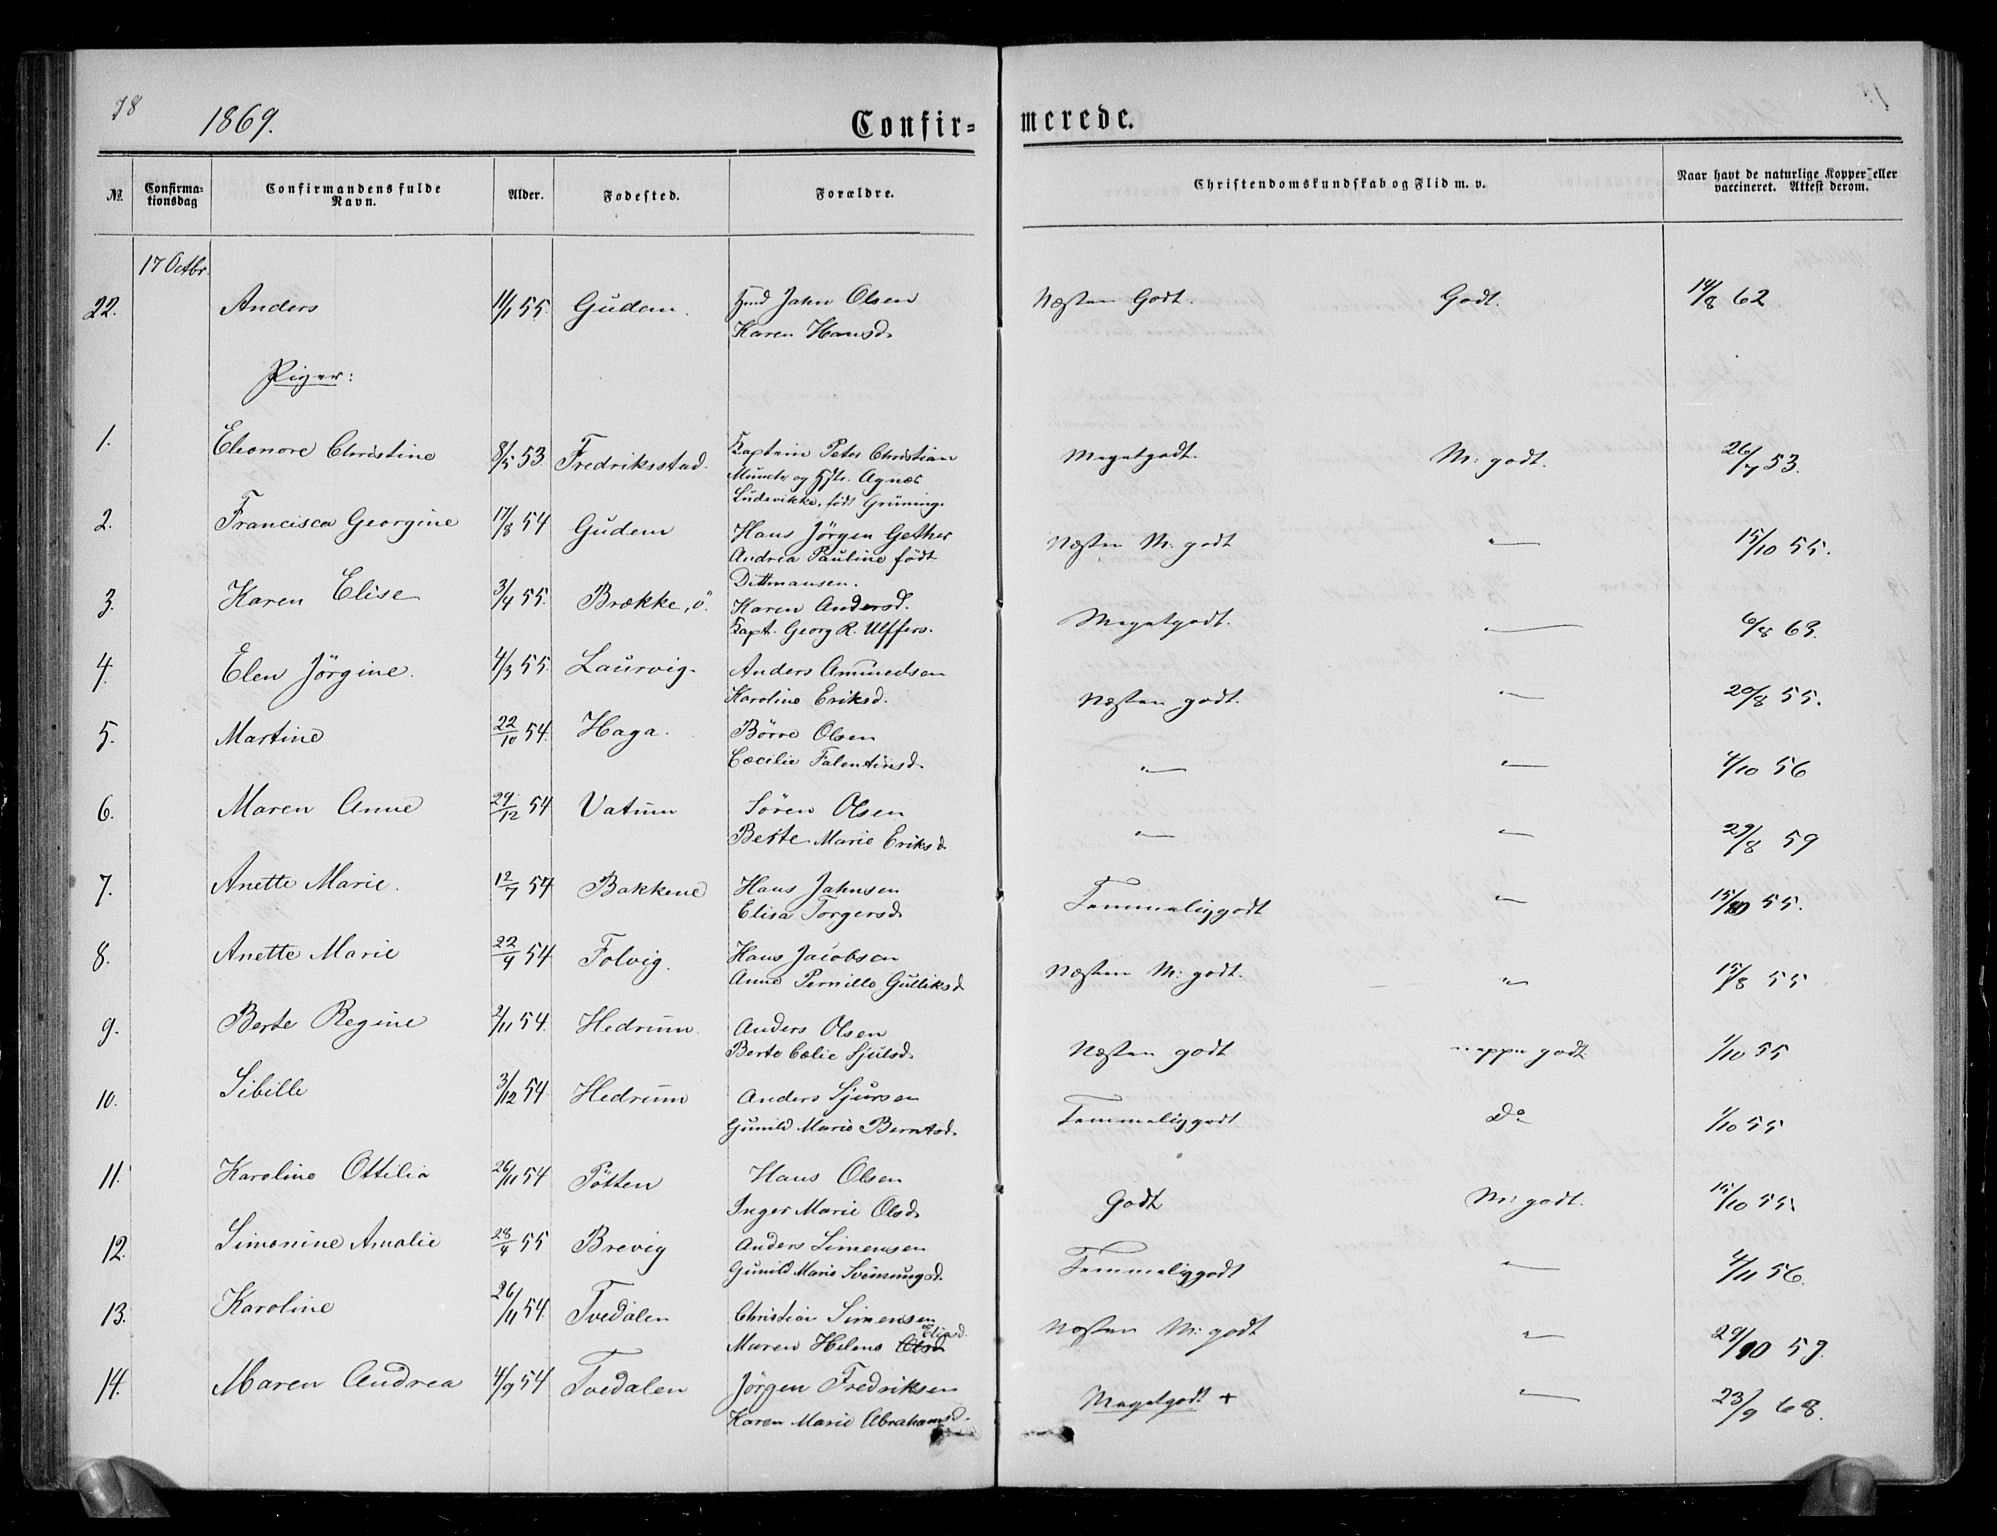 78
1869.
Confir-
merede.
No.
Confirma-
tionsdag
Confirmandens fulde
Navn.
Alder.
Fødested.
Forældre.
Christendomskundskab og Flid m. v.
Naar havt de naturlige Kopper eller
vaccineret. Attest derom.
17 Octbr.
22. Anders 11/1 55. Gudem. Jahn Olsen Næsten Godt. Godt. 14/8 62
Karen Hansd.
Piger:
1. Eleonore Christine 8/5 53. Fredriksstad. Kaptein Peter Christian Megetgodt. M: godt. 26/7 53.
Munch og Hstr. Agnes
Ludevikke, født Grüning.
2. Francisca Georgine 17/8 54 Gudem Hans Jörgen Gether Næsten M: godt " 15/10 55.
Andrea Pauline født
Dittmansen.
3. Karen Elise 3/4 55. Brække, ö. Karen Andersd. Megetgodt. " 6/8 63.
Kapt. Georg R. Ulffers.
4. Elen Jörgine. 4/3 55. Laurvig. Anders Amundsen Næsten godt. " 20/8 55.
Karoline Eriksd.
5. Martine 22/10 54. Haga. Börre Olsen " " 4/10 56
Cæcilie Falentinsd.
6. Maren Anne 29/12 54 Vatum Sören Olsen " " 29/8 59
Berte Marie Eriksd.
7. Anette Marie. 12/7 54 Bakkene Hans Jahnsen Temmeliggodt " 15/10 55.
Elisa Torgersd.
8. Anette Marie 22/9 54 Folvig. Hans Jacobsen Næsten M: godt. " 15/8 55
Anne Pernille Gulliksd.
9. Berte Regine 2/11 54. Hedrum. Anders Olsen Næsten godt neppe godt. 1/10 55
Berte Cælie Sjulsd.
10. Sibille 3/12 54 Hedrum Anders Sjursen Temmeliggodt Do 1/10 55
Gunild Marie Berntsd.
11. Karoline Ottilia 26/11 54 Pötten Hans Olsen Godt M: godt. 15/10 55.
Inger Marie Olsd.
12. Simonine Amalie 28/4 55 Brevig Anders Simensen Temmeliggodt " 4/11 56.
Gunild Marie Svennungsd.
13. Karoline 26/11 54. Tvedalen Christian Simensen Næsten M: godt " 29/10 59.
Eliasd.
Maren Helene Olsd.
14. Maren Andrea 4/9 54 Tvedalen Jörgen Fredriksen Megetgodt + " 23/9 68.
Karen Marie Abrahamsd.